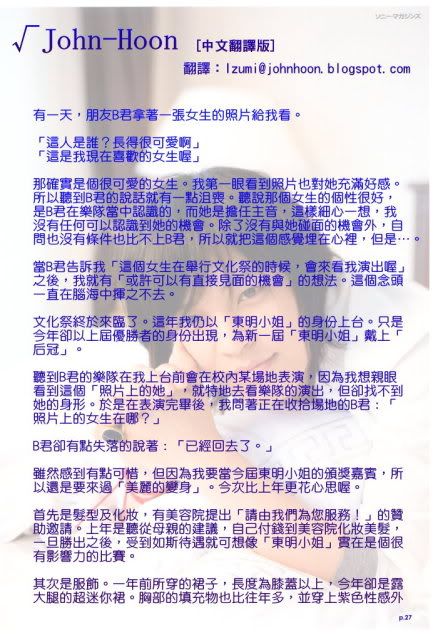 ソニー・マガジンズ
√John-Hoon [中文翻譯版]
翻譯：Izumi@johnhoon.blogspot.com
有一天，朋友B君拿著一張女生的照片給我看。
「這人是誰？長得很可愛啊」
「這是我現在喜歡的女生喔」
那確實是個很可愛的女生。我第一眼看到照片也對她充滿好感。
所以聽到B君的說話就有一點沮喪。聽說那個女生的個性很好，
是B君在樂隊當中認識的，而她是擔任主音，這樣細心一想，我
沒有任何可以認識到她的機會。除了沒有與她碰面的機會外，自
問也沒有條件也比不上B君，所以就把這個感覺埋在心裡，但是…。
當B君告訴我「這個女生在舉行文化祭的時候，會來看我演出喔」
之後，我就有「或許可以有直接見面的機會」的想法。這個念頭
一直在腦海中揮之不去。
文化祭終於來臨了。這年我仍以「東明小姐」的身份上台。只是
今年卻以上屆優勝者的身份出現，為新一屆「東明小姐」戴上「
后冠」。
聽到B君的樂隊在我上台前會在校內某場地表演，因為我想親眼
看到這個「照片上的她」，就特地去看樂隊的演出，但卻找不到
她的身形。於是在表演完畢後，我問著正在收拾場地的B君：「
照片上的女生在哪？」
B君卻有點失落的說著：「已經回去了。」
雖然感到有點可惜，但因為我要當今屆東明小姐的頒獎嘉賓，所
以還是要來過「美麗的變身」。今次比上年更花心思喔。
首先是髮型及化妝，有美容院提出「請由我們為您服務！」的贊
助邀請。上年是聽從母親的建議，自己付錢到美容院化妝美髮，
一旦勝出之後，受到如斯待遇就可想像「東明小姐」實在是個很
有影響力的比賽。
其次是服飾。一年前所穿的裙子，長度為膝蓋以上，今年卻是露
大腿的超迷你裙。胸部的填充物也比往年多，並穿上紫色性感外
p.27